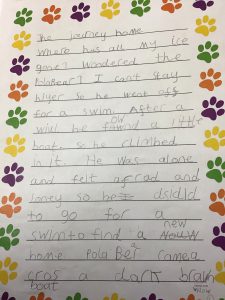 The journey home
Where has all my ice
gone? Wondered the
I cant stay
so he went off
for a swim. After a
he found a
boat. so he climbed
in it. He was alone
and felt afrad and
loney so
to go for a
new
swim to find a
home Pola camea
cros a dark
boat